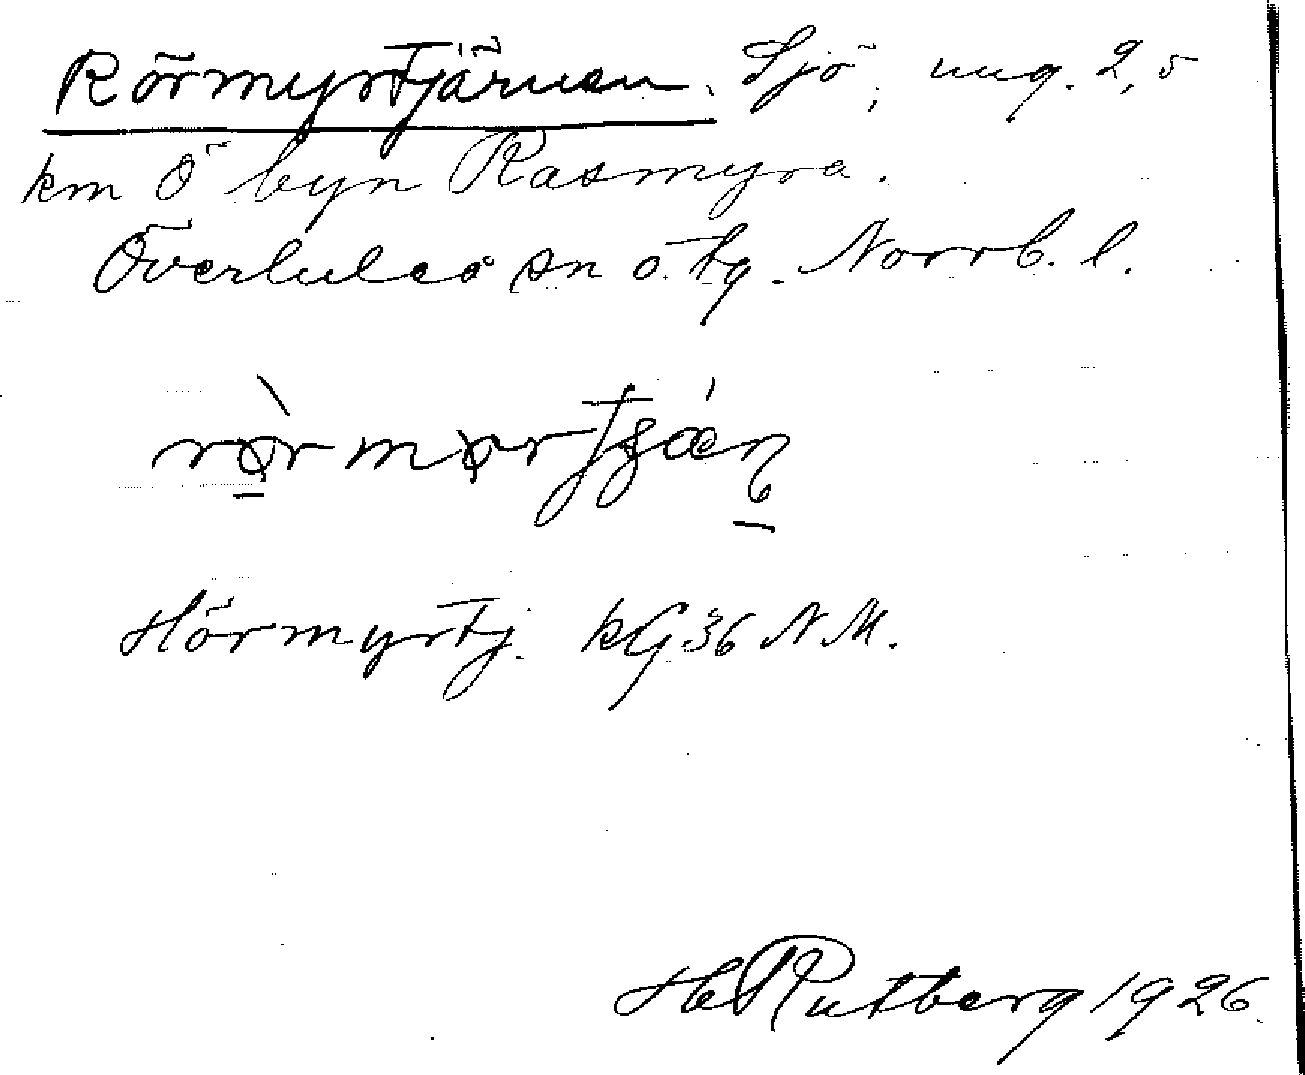 Rörmyrtjärnen. Sjö, ung. 2,5
km Ö byn Rasmyra.
Överluleå sn o. tg. Norrb. l.
Hörmyrtj. kG 36 N M.
H Rutberg 1926.